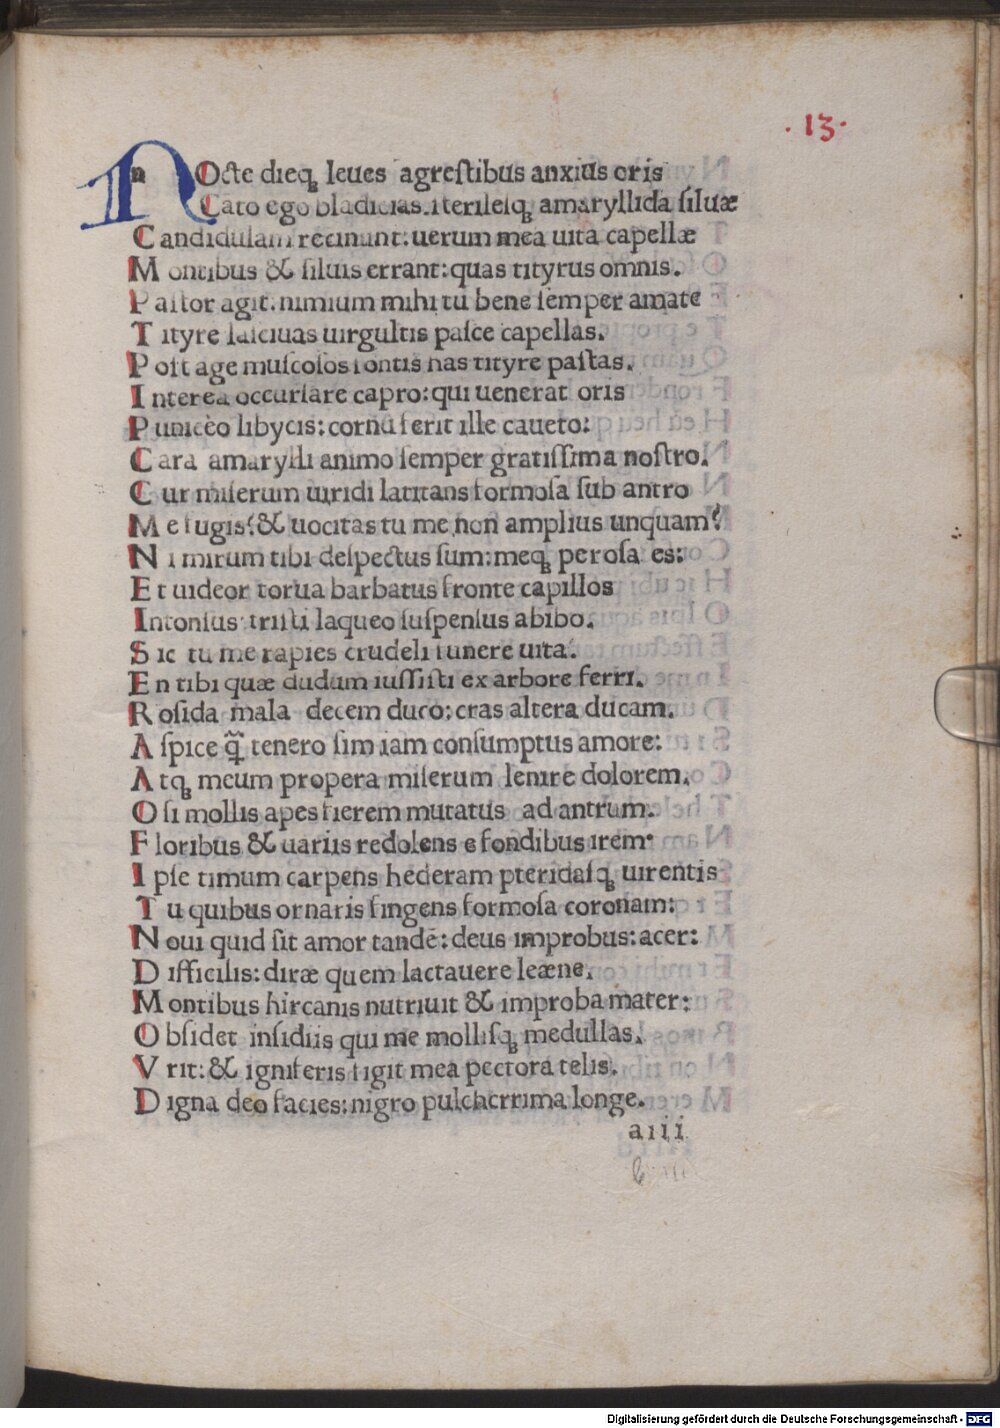 ·13·
nOcte dieqꝫ leues agrestibus anxius oris
Cāto ego bladicias.iterileiqꝫ amaryllida siluæ
Candidulam recinunt:uerum mea uita capellæ
Montibus & siluis errant:quas tityrus omnis.
Pastor agit.nimium mihi tu bene semper amate
Tityre lasciuas uirgultis pasce capellas.
Post age muscosos fontis has tityre pastas.
Interea occursare capro:qui uenerat oris
Puniceo libycis:cornu ferit ille caueto:
Cara amarylli animo semper gratissima nostro.
Cur miserum uiridi latitans formosa sub antro
Me fugis?& uocitas tu me non amplius unquam?
Ni mirum tibi despectus sum:meqꝫ perosa es:
Et uideor torua barbatus fronte capillos
Intonsus tristi laqueo suspensus abibo.
Sic tu me rapies crudeli funere uita.
En tibi quæ dudum iussisti ex arbore ferri.
Rosida mala decem duco:cras altera ducam.
Aspice q̃ tenero sim iam consumptus amore:
Atqꝫ meum propera miserum lenire dolorem.
O si mollis apes fierem mutatus ad antrum.
Floribus & uariis redolens e fondibus irem·
Ipse timum carpens hederam pteridasqꝫ uirentis
Tu quibus ornaris fingens formosa coronam:
Noui quid sit amor tandē:deus improbus:acer:
Difficilis:diræ quem lactauere leæne.
Montibus hircanis nutriuit & improba mater:
Obsidet insidiis qui me mollisqꝫ medullas.
Vrit:& igniferis figit mea pectora telis.
Digna deo facies:nigro pulcherrima longe.
aiii
Digitalisierung gefördert durch die Deutsche Forschungsgemeinschaft - DFG